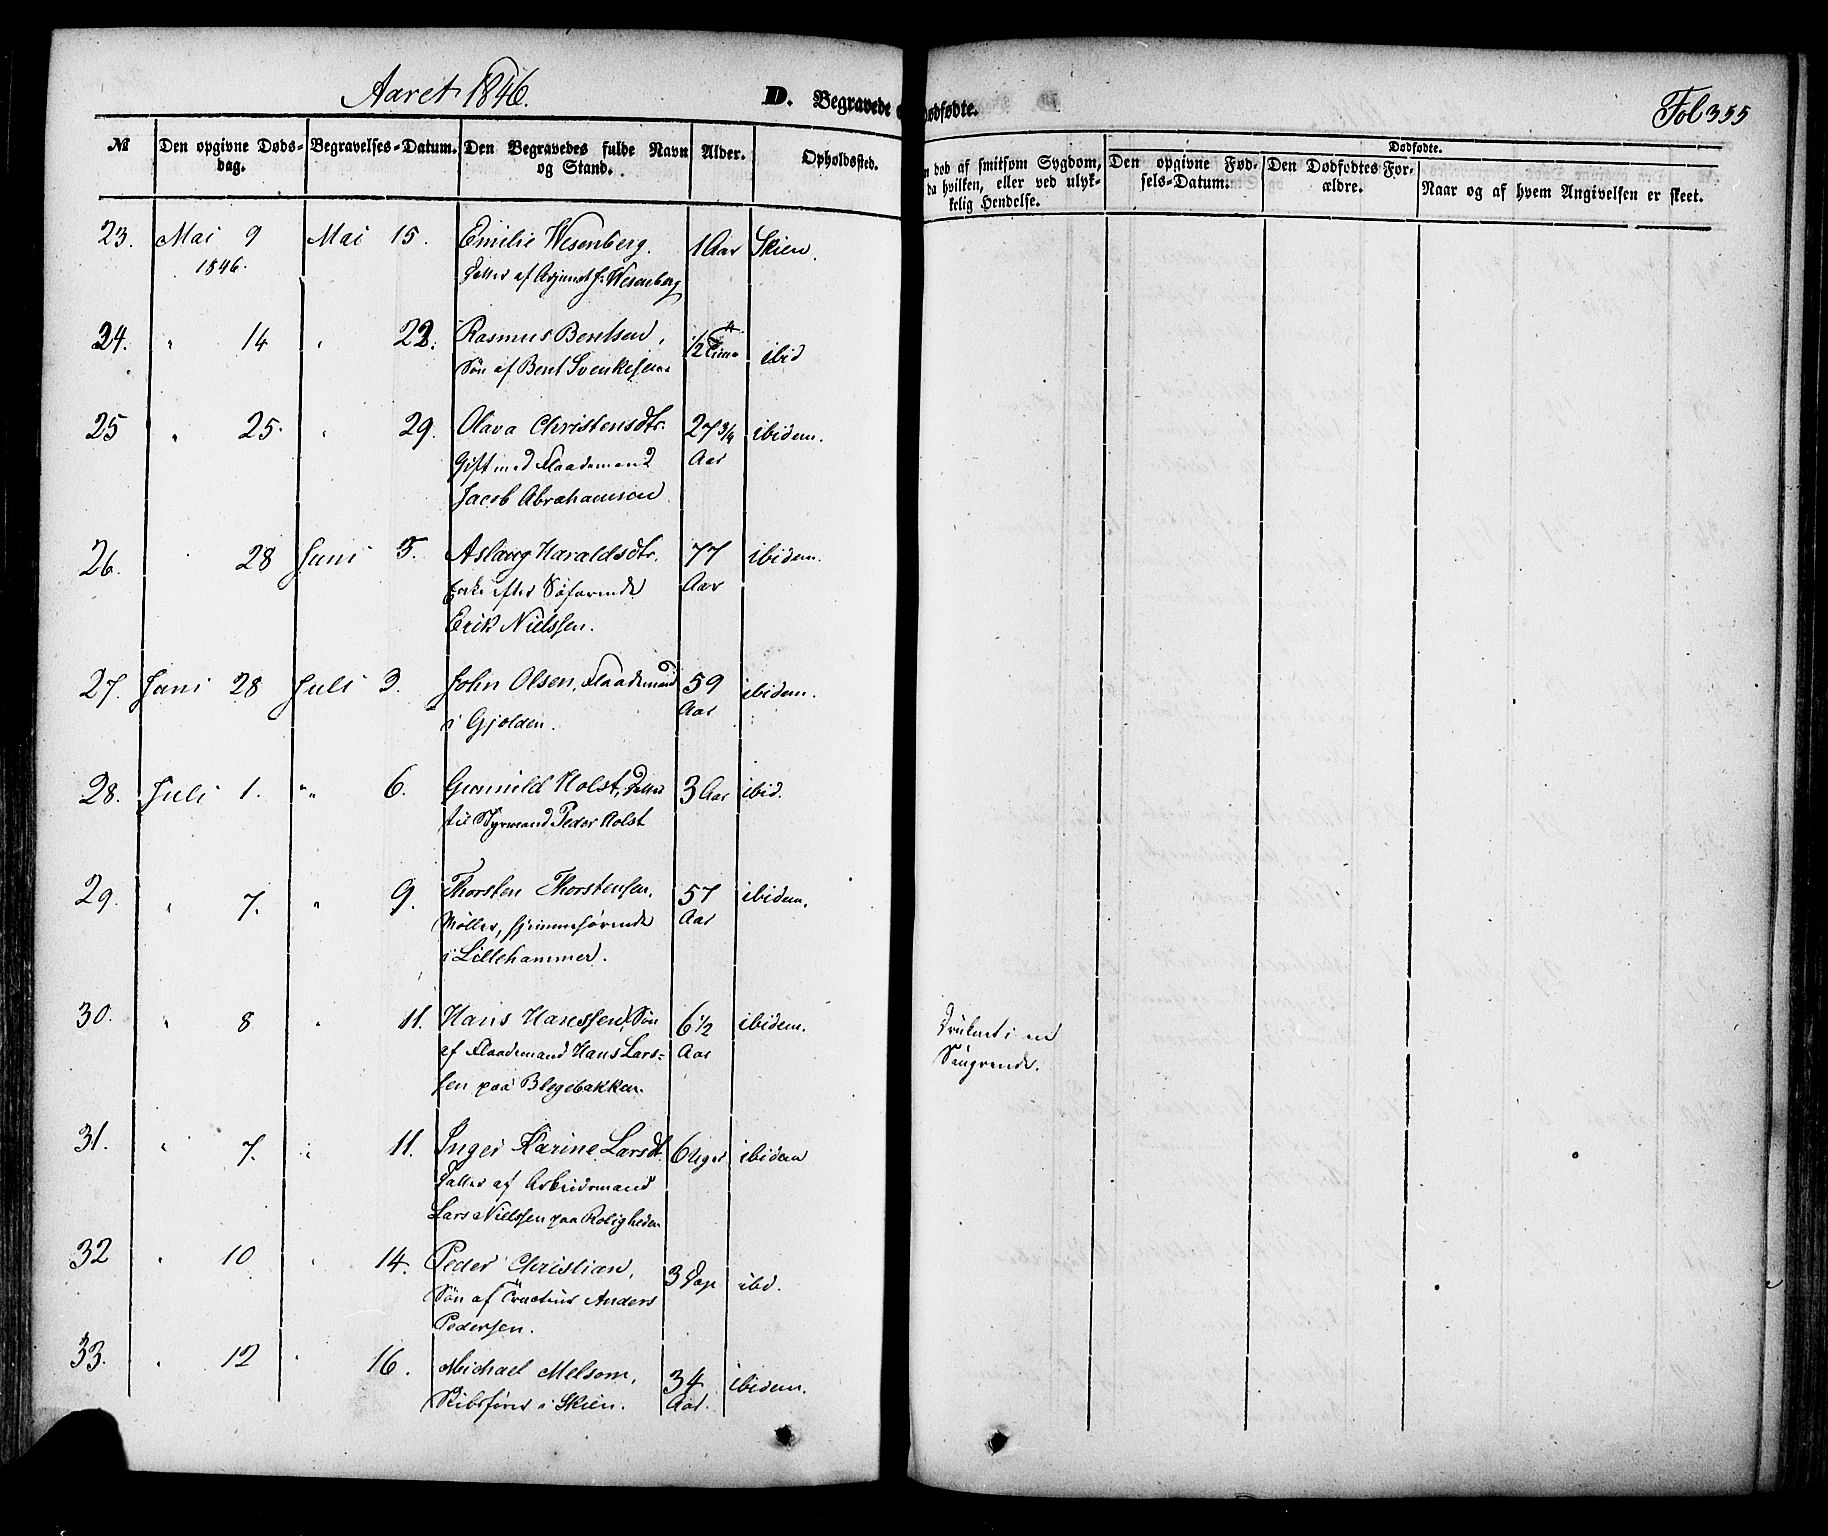 Aaret 1846.
D. Begravede
Dødfødte.
Fol 355
№ Den opgivne Døds-
dag. Begravelses-Datum. Den Begravedes fulde Navn
og Stand. Alder. Opholdsted.
død af smitsom Sygdom,
da hvilken, eller ved ulyk-
kelig Hendelse.
Dødfødte.
Den opgivne Fød-
sels-Datum. Den Dødfødtes For-
ældre. Naar og af hvem Angivelsen er skeet.
23. Mai 9 Mai 15. Emilie Wesenberg. 1 Aar Skien.
1846.
Datter af J: Wesenberg
24. " 14 " 22. Rasmus Bentsen, 1/2 Time ibid
Søn af Bent Svenkesen
25 " 25. " 29. Olava Christensdtr. 27 3/4 ibidem.
Gift med Flaademand Aar
Jacob Abrahamson
26. 28 Juni 5. Aslaug Haraldsdtr. 77 ibidem.
Enke efter Søfarende Aar
Erik Nielssen.
27. Juni 28 Juli 3. John Olsen, Flaademand 59 ibidem.
i Gjolden. Aar
28. Juli 1. "" 6. Gunnild Holst, Datter 3 Aar ibid.
til Styrmand Peder Holst
29. " 7. " 9. Thorsten Thorstensen, 57 ibidem.
Møller, hjemmehørende Aar
i Lillehammer.
30. " 8 " 11. Hans Hanssen, Søn 6 1/2 ibidem. Druknet i en
af Flaademand Hans Lars- Aar Saugrende.
sen paa Blegebakken.
31. " 7. " 11. Inger Karine Larsdt. 6 Uger ibidem
Datter af Arbeidsmand
Lars Nielssen paa Roligheden
32 " 10 " 14. Peder Christian, 3 Dage ibd.
Søn af Anders
Pedersen.
33. " 12 " 16. Michael Melsom, 34 ibidem.
Skibsfører i Skien. Aar.